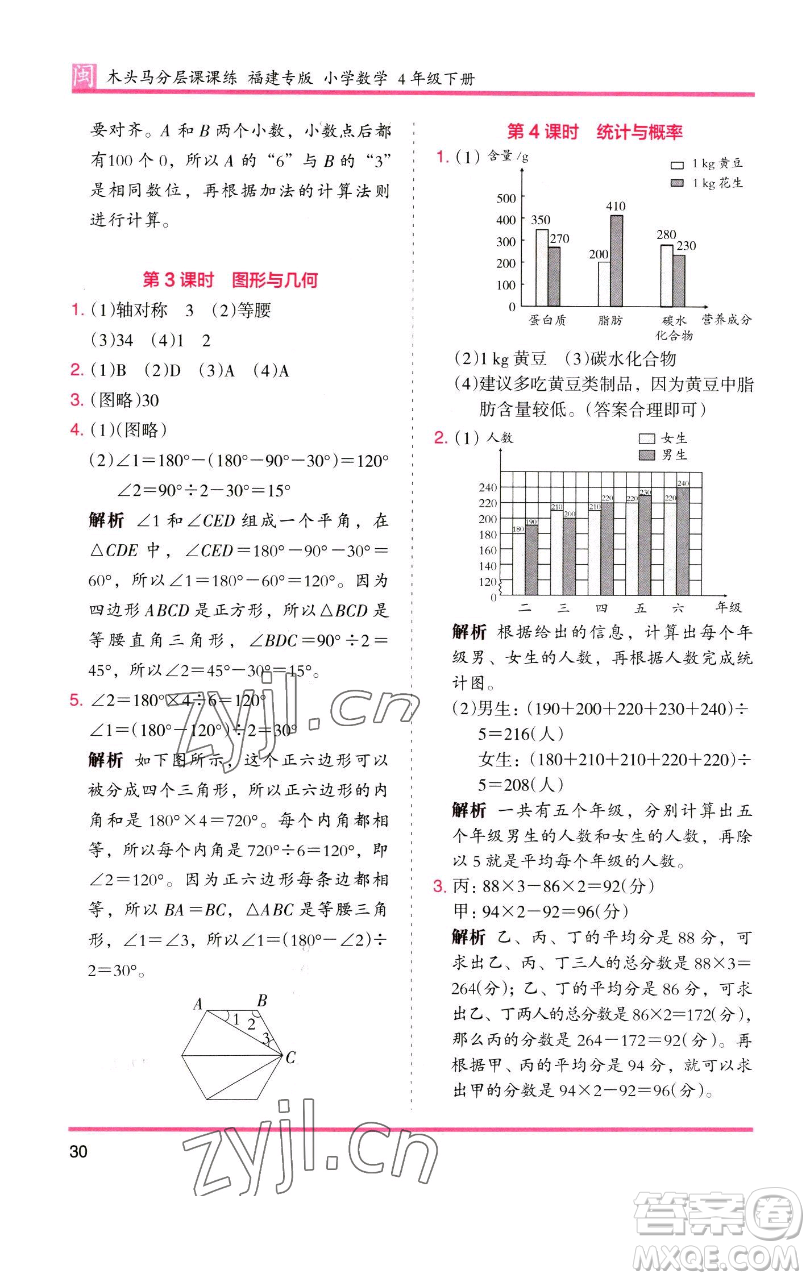 闽 木头马分层课课练 福建专版 小学数学 4年级下册
要对齐。A和B两个小数，小数点后都
有100个0，所以A的“6”与B的“3”
是相同数位，再根据加法的计算法则
进行计算。
第3课时 图形与几何
1. (1)轴对称 3 (2)等腰
(3)34 (4)1 2
2. (1)B (2)D (3)A (4)A
3. (图略)30
4. (1)(图略)
(2)∠1=180°-(180°-90°-30°)=120°
∠2=90°÷2-30°=15°
解析 ∠1和∠CED组成一个平角，在
△CDE中，∠CED=180°-90°-30°=
60°，所以∠1=180°-60°=120°。因为
四边形ABCD是正方形，所以△BCD是
等腰直角三角形，∠BDC=90°÷2=
45°，所以∠2=45°-30°=15°。
5. ∠2=180°×4÷6=120°
∠1=(180°-120°)÷2=30°
解析 如下图所示，这个正六边形可以
被分成四个三角形，所以正六边形的内
角和是180°×4=720°。每个内角都相
等，所以每个内角是720°÷6=120°，即
∠2=120°。因为正六边形每条边都相
等，所以BA=BC，△ABC是等腰三角
形，∠1=∠3，所以∠1=(180°-∠2)÷
2=30°。
A B
1 2
3
C
第4课时 统计与概率
1. (1) 含量/g
1 kg黄豆
1 kg花生
500
400
300
200
100
0
350 270 200 410 280 230
蛋白质 脂肪 碳水化合物 营养成分
(2)1 kg黄豆 (3)碳水化合物
(4)建议多吃黄豆类制品，因为黄豆中脂
肪含量较低。(答案合理即可)
2. (1) 人数
女生
男生
240
220
200
180
160
140
120
0
180 190 210 200 210 220 220 230 220 240
二 三 四 五 六 年级
解析 根据给出的信息，计算出每个年
级男、女生的人数，再根据人数完成统
计图。
(2)男生：(190+200+220+230+240)÷
5=216(人)
女生：(180+210+210+220+220)÷
5=208(人)
解析 一共有五个年级，分别计算出五
个年级男生的人数和女生的人数，再除
以5就是平均每个年级的人数。
3. 丙：88×3-86×2=92(分)
甲：94×2-92=96(分)
解析 乙、丙、丁的平均分是88分，可
求出乙、丙、丁三人的总分数是88×3=
264(分)；乙、丁的平均分是86分，可求
出乙、丁两人的总分数是86×2=172(分)，
那么丙的分数是264-172=92(分)。再
根据甲、丙的平均分是94分，可以求
出甲的分数是94×2-92=96(分)。
30
zyjl.cn
zyjl.cn
答案圈
MXQE.COM